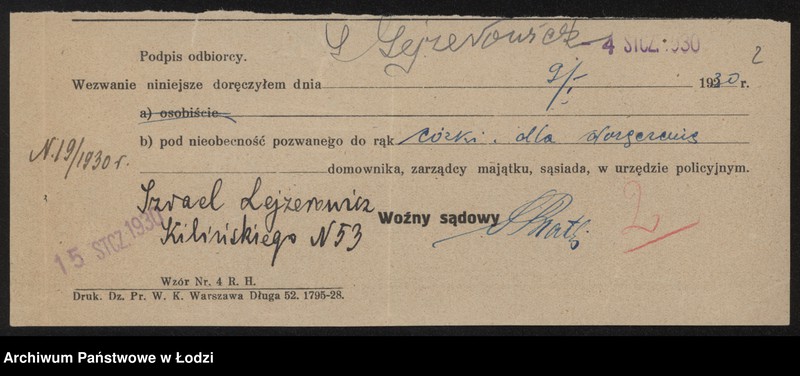 Lejzerowicz
4 STCZ. 1930
2
Podpis odbiorcy.
Wezwanie niniejsze doręczyłem dnia 9/I 1930 r.
a) osobiście
b) pod nieobecność pozwanego do rąk córki. dla doręczenia
N. 19/1930 r.
domownika, zarządcy majątku, sąsiada, w urzędzie policyjnym.
Izrael Lejzerowicz
Kilińskiego N 53
Woźny sądowy
2
15 STCZ. 1930
Wzór Nr. 4 R. H.
Druk. Dz. Pr. W. K. Warszawa Długa 52. 1795-28.
Archiwum Państwowe w Łodzi